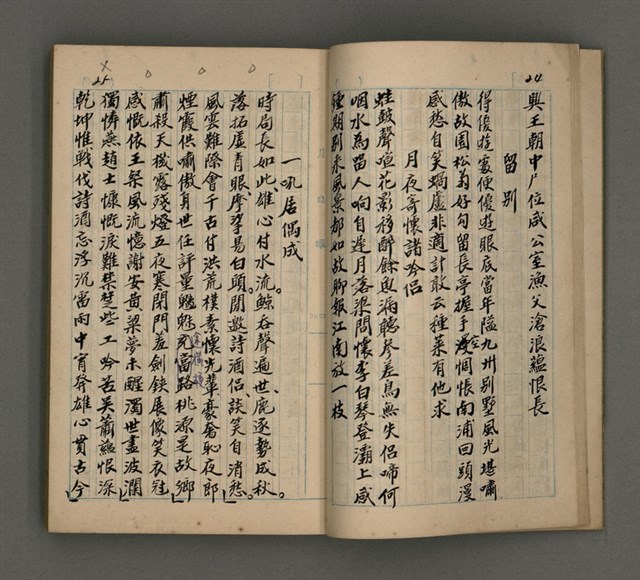 24
興王朝中尸位咸公室漁父滄浪蘊恨長
留別
得復遊處便優遊眼底當年隘九州別墅風光堪嘯
傲故園松菊好句留長亭握手空惆悵南浦回頭漫
感愁自笑蝸廬非適計敢云種菜有他求
月夜寄懷諸吟侶
蛙鼓聲喧花影移醉餘更漏聽參差鳥無失侶啼何
咽水為留人响自遲月落梁間懷李白琴登灞上感
鍾期別來風景都如故聊報江南放一枝
25
一吼居偶成
時局長如此雄心付水流鯨吞聲遍世鹿逐勢成秋。
落拓虛青眼摩挲易白頭。閒邀詩酒侶、談笑自消愁。
風雲難際會千古付洪荒樸素懷先輩豪奢恥夜郎
煙霞供嘯傲身世任評量魑魅當路桃源是故鄉
肅殺天機露殘燈五夜寒閉門羞劍鋏展像笑衣冠
感慨依王粲風流憶謝安黃粱夢未醒濁世盡波瀾
獨憐燕趙士慷慨淚難禁楚些工吟苦吳簫蘊恨深
乾坤惟戰伐詩酒忘浮沉雷雨中宵奔雄心貫古今